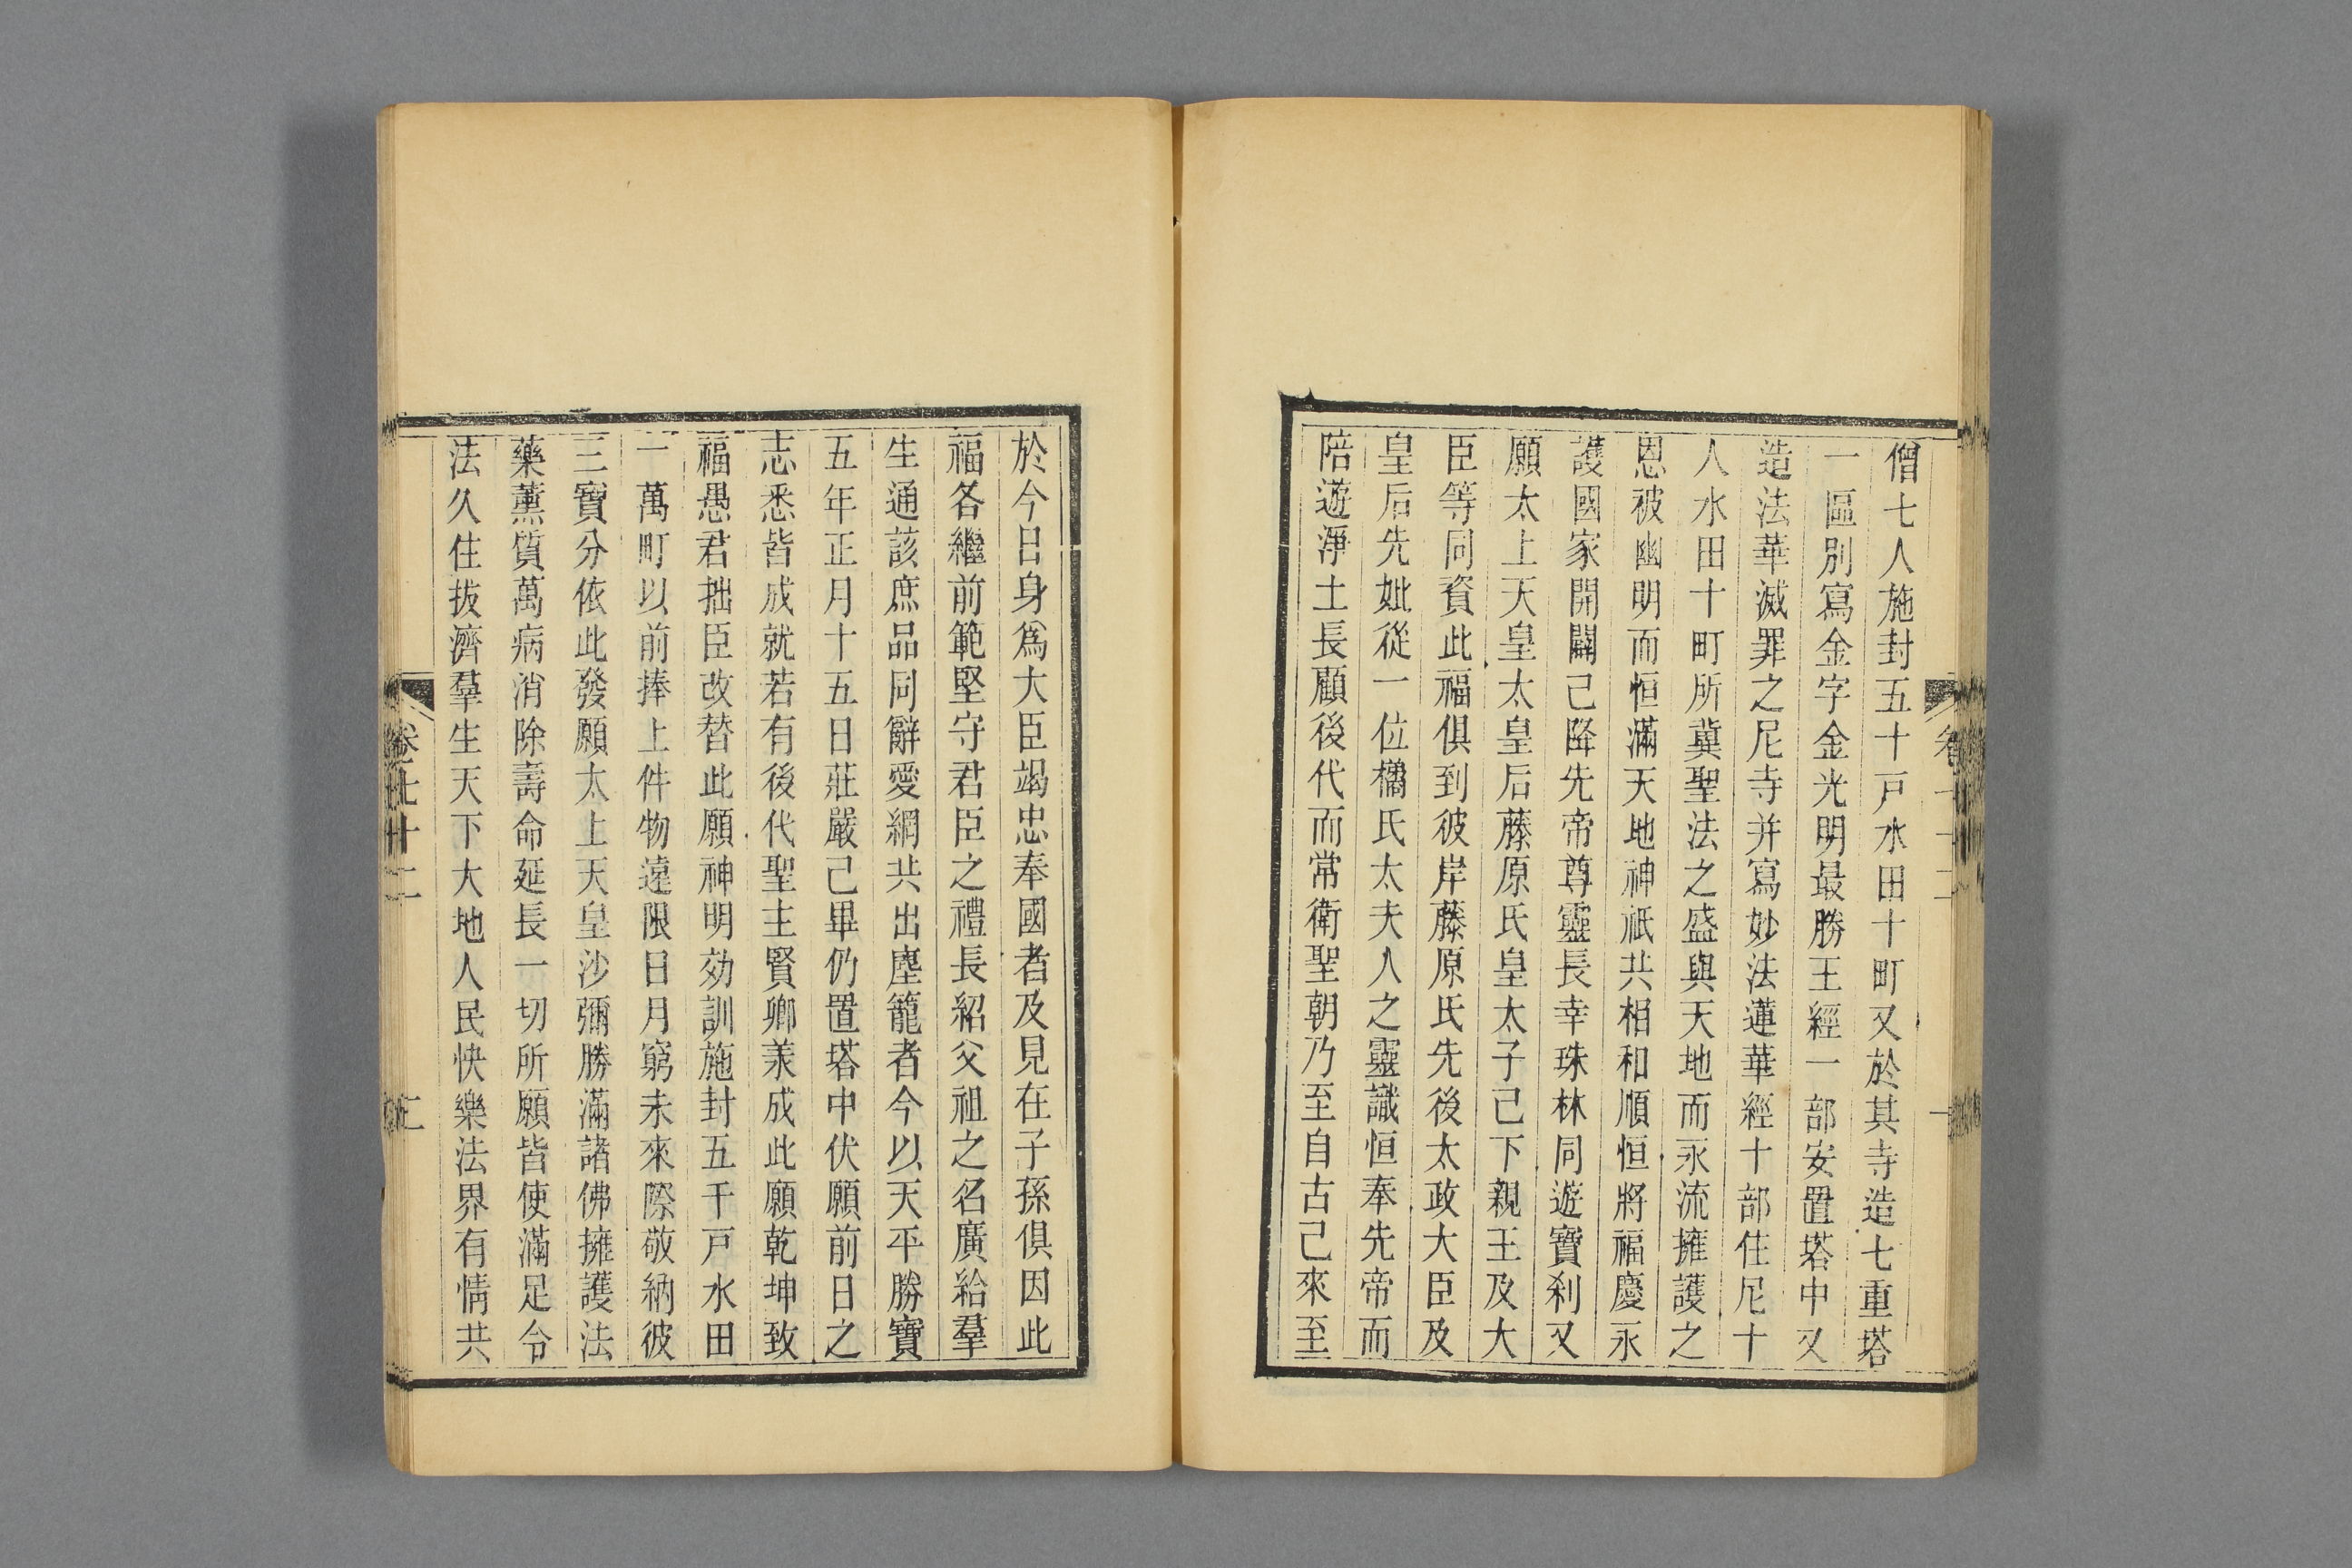 僧七人施封五十戸水田十町又於其寺造七重塔
一區別寫金字金光明最勝王經一部安置塔中又
造法華滅罪之尼寺并寫妙法蓮華經十部住尼十
人水田十町所冀聖法之盛與天地而永流擁護之
恩被幽明而恒滿天地神祇共相和順恒將福慶永
護國家開闢已降先帝尊靈長幸珠林同遊寶刹又
願太上天皇太皇后藤原氏皇太子已下親王及大
臣等同資此福俱到彼岸藤原氏先後太政大臣及
皇后先妣從一位橘氏太夫人之靈識恒奉先帝而
陪遊淨土長顧後代而常衛聖朝乃至自古已來至
於今日身爲大臣竭忠奉國者及見在子孫俱因此
福各繼前範堅守君臣之禮長紹父祖之名廣給羣
生通該庶品同辭愛網共出塵籠者今以天平勝寶
五年正月十五日莊嚴已畢仍置塔中伏願前日之
志悉皆成就若有後代聖主賢卿羕成此願乾坤致
福愚君拙臣改替此願神明効訓施封五千戸水田
一萬町以前捧上件物遠限日月窮未來際敬納彼
三寶分依此發願太上天皇沙彌勝滿諸佛擁護法
藥薰質萬病消除壽命延長一切所願皆使滿足令
法久住拔濟羣生天下大地人民快樂法界有情共